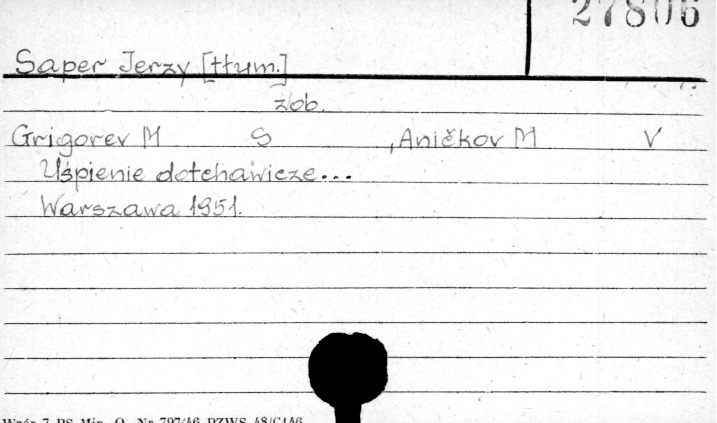 27806
Saper Jerzy [tłum.]
zob.
Grigorev M S , Aničkov M V
Uśpienie dotchawicze...
Warszawa 1951.
Wzór 7 BS Min. O. Nr 797/46 PZWS 48/C146